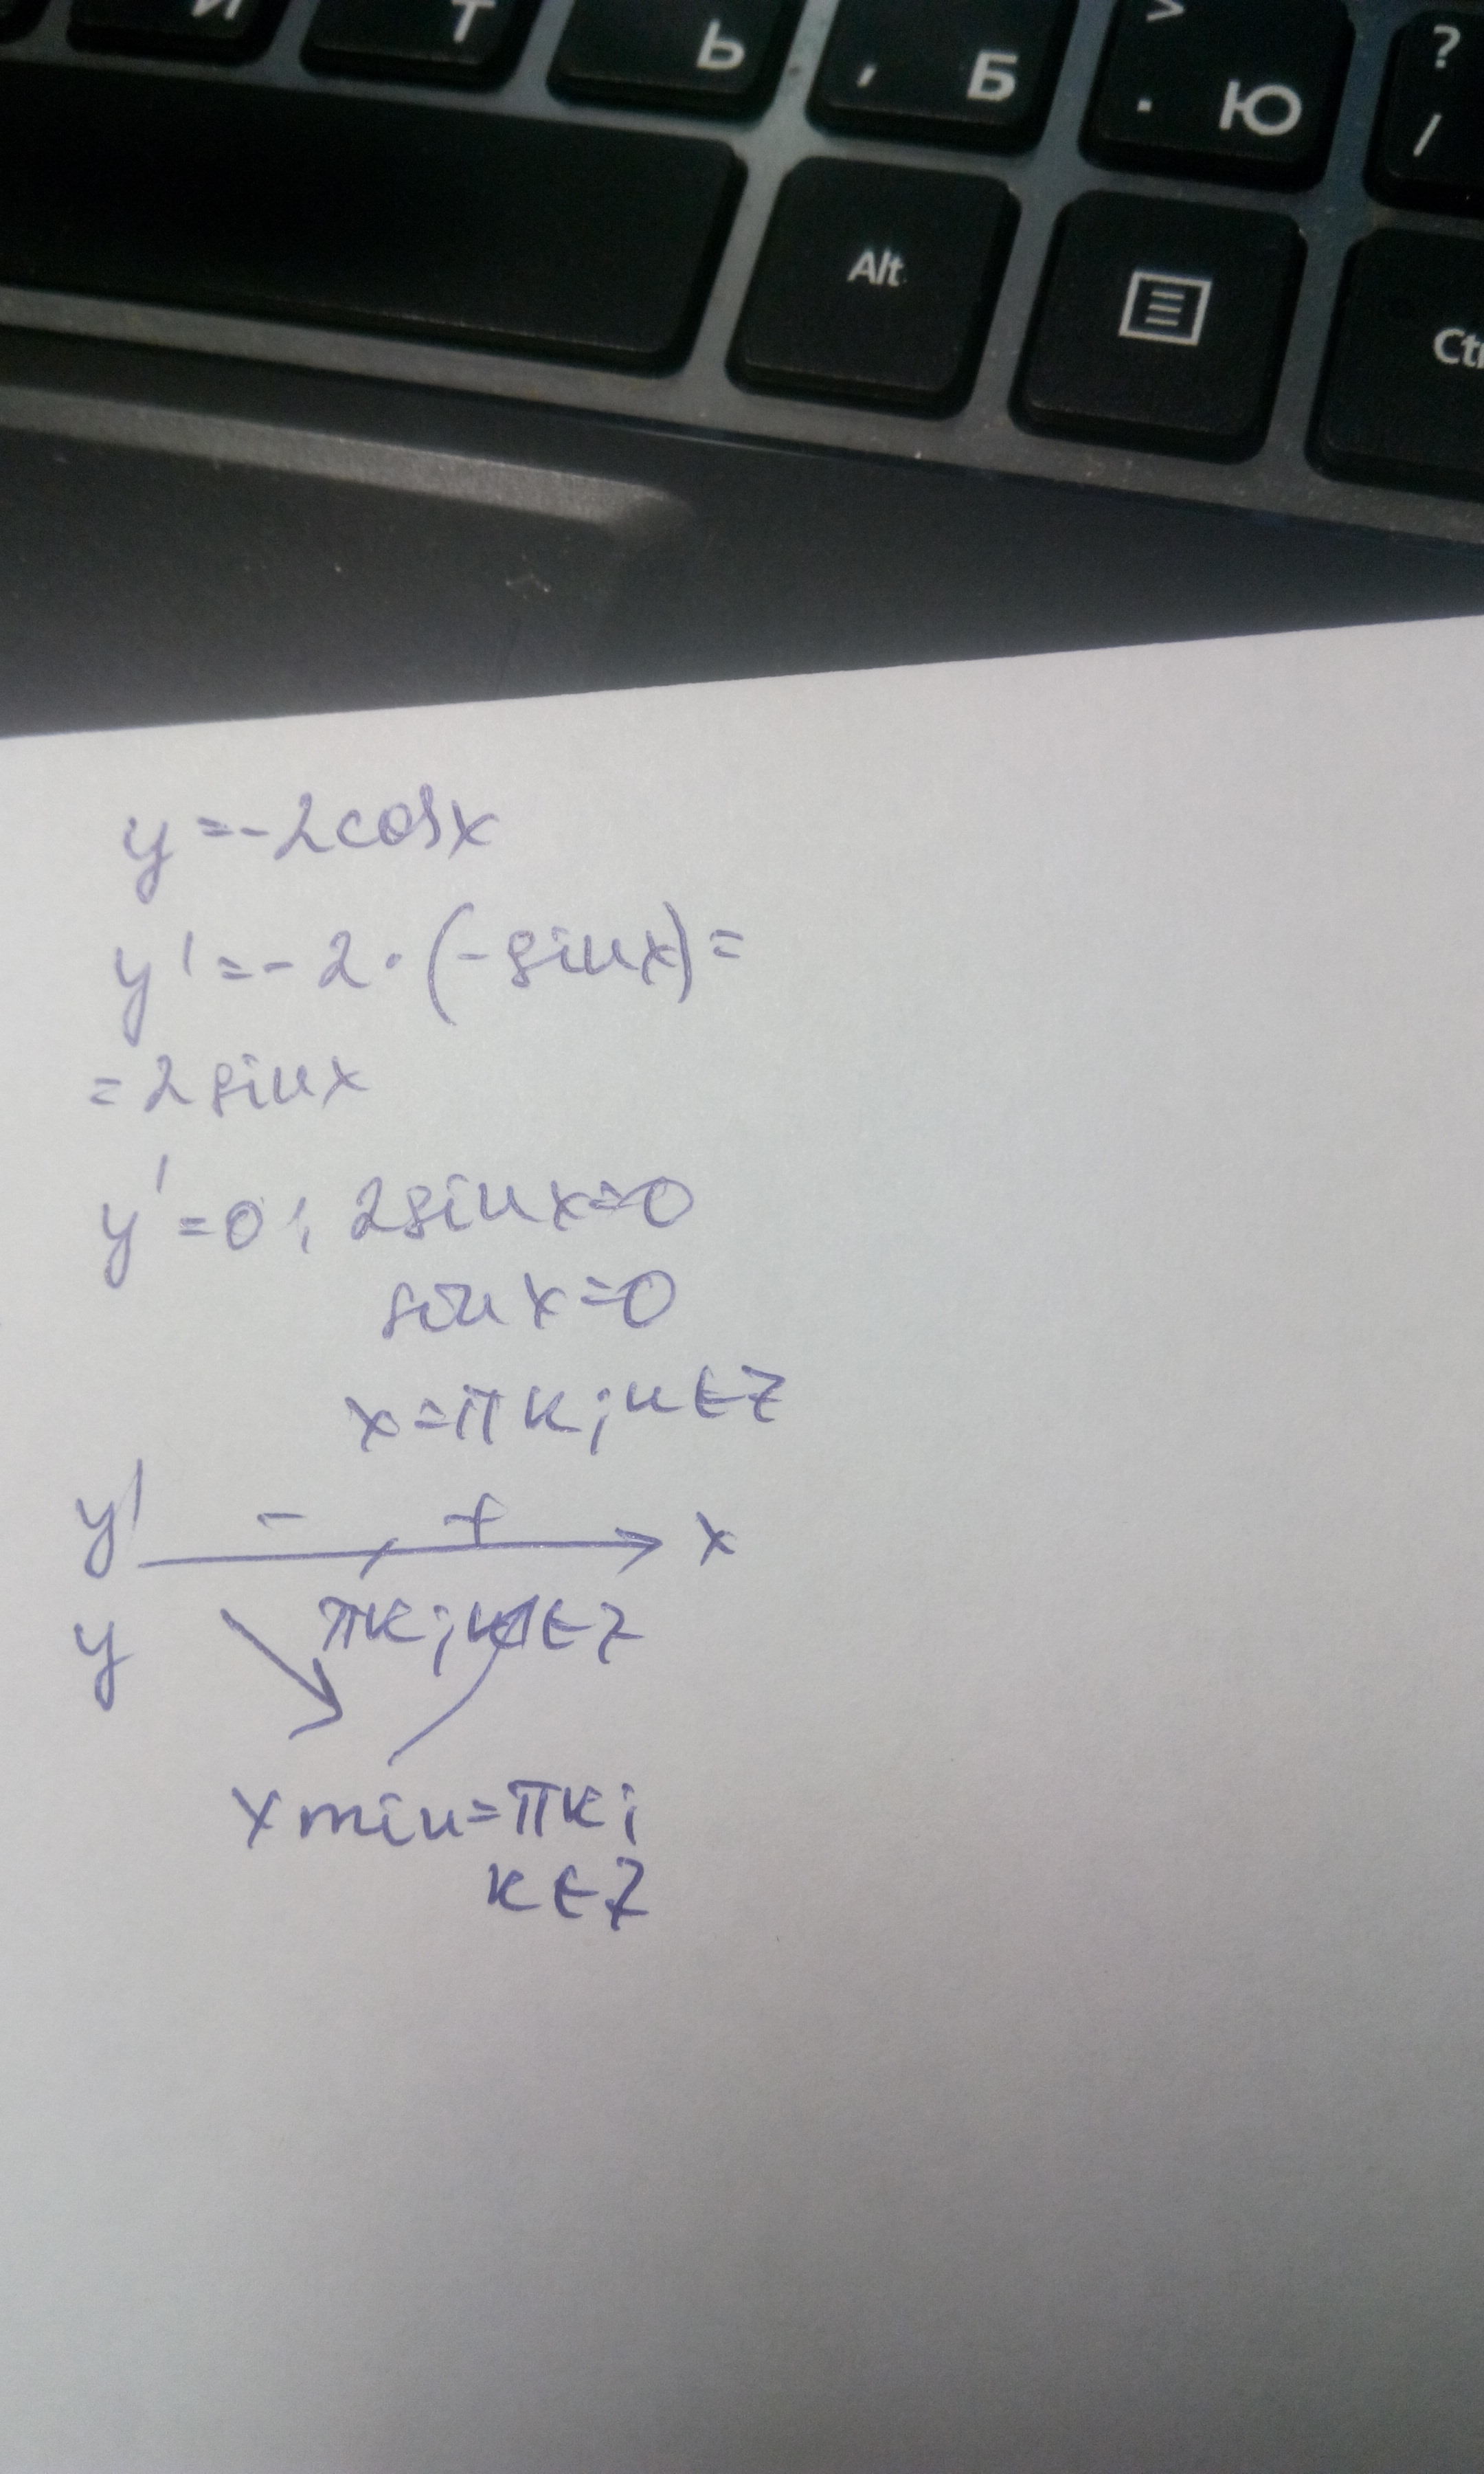 Т
Ь
, Б
> . Ю
? /
Alt
y = -2cosx
y' = -2·(-sinx) =
= 2sinx
y' = 0; 2sinx=0
sinx=0
x=πк; к∈Z
y' - + x
πк; к∈Z
y
xmin=πк;
к∈Z